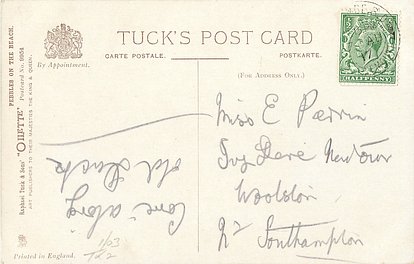 TUCK'S POST CARD
CARTE POSTALE.
POSTKARTE.
By Appointment.
(FOR ADDRESS ONLY.)
PEBBLES ON THE BEACH.
Postcard No. 9954
Raphael Tuck & Sons' "OILETTE"
ART PUBLISHERS TO THEIR MAJESTIES THE KING & QUEEN.
Printed in England.
HALFPENNY
Miss E Parrin
Ivy Dene New Town
Woolston
Nr Southampton
Come along
old
1/03